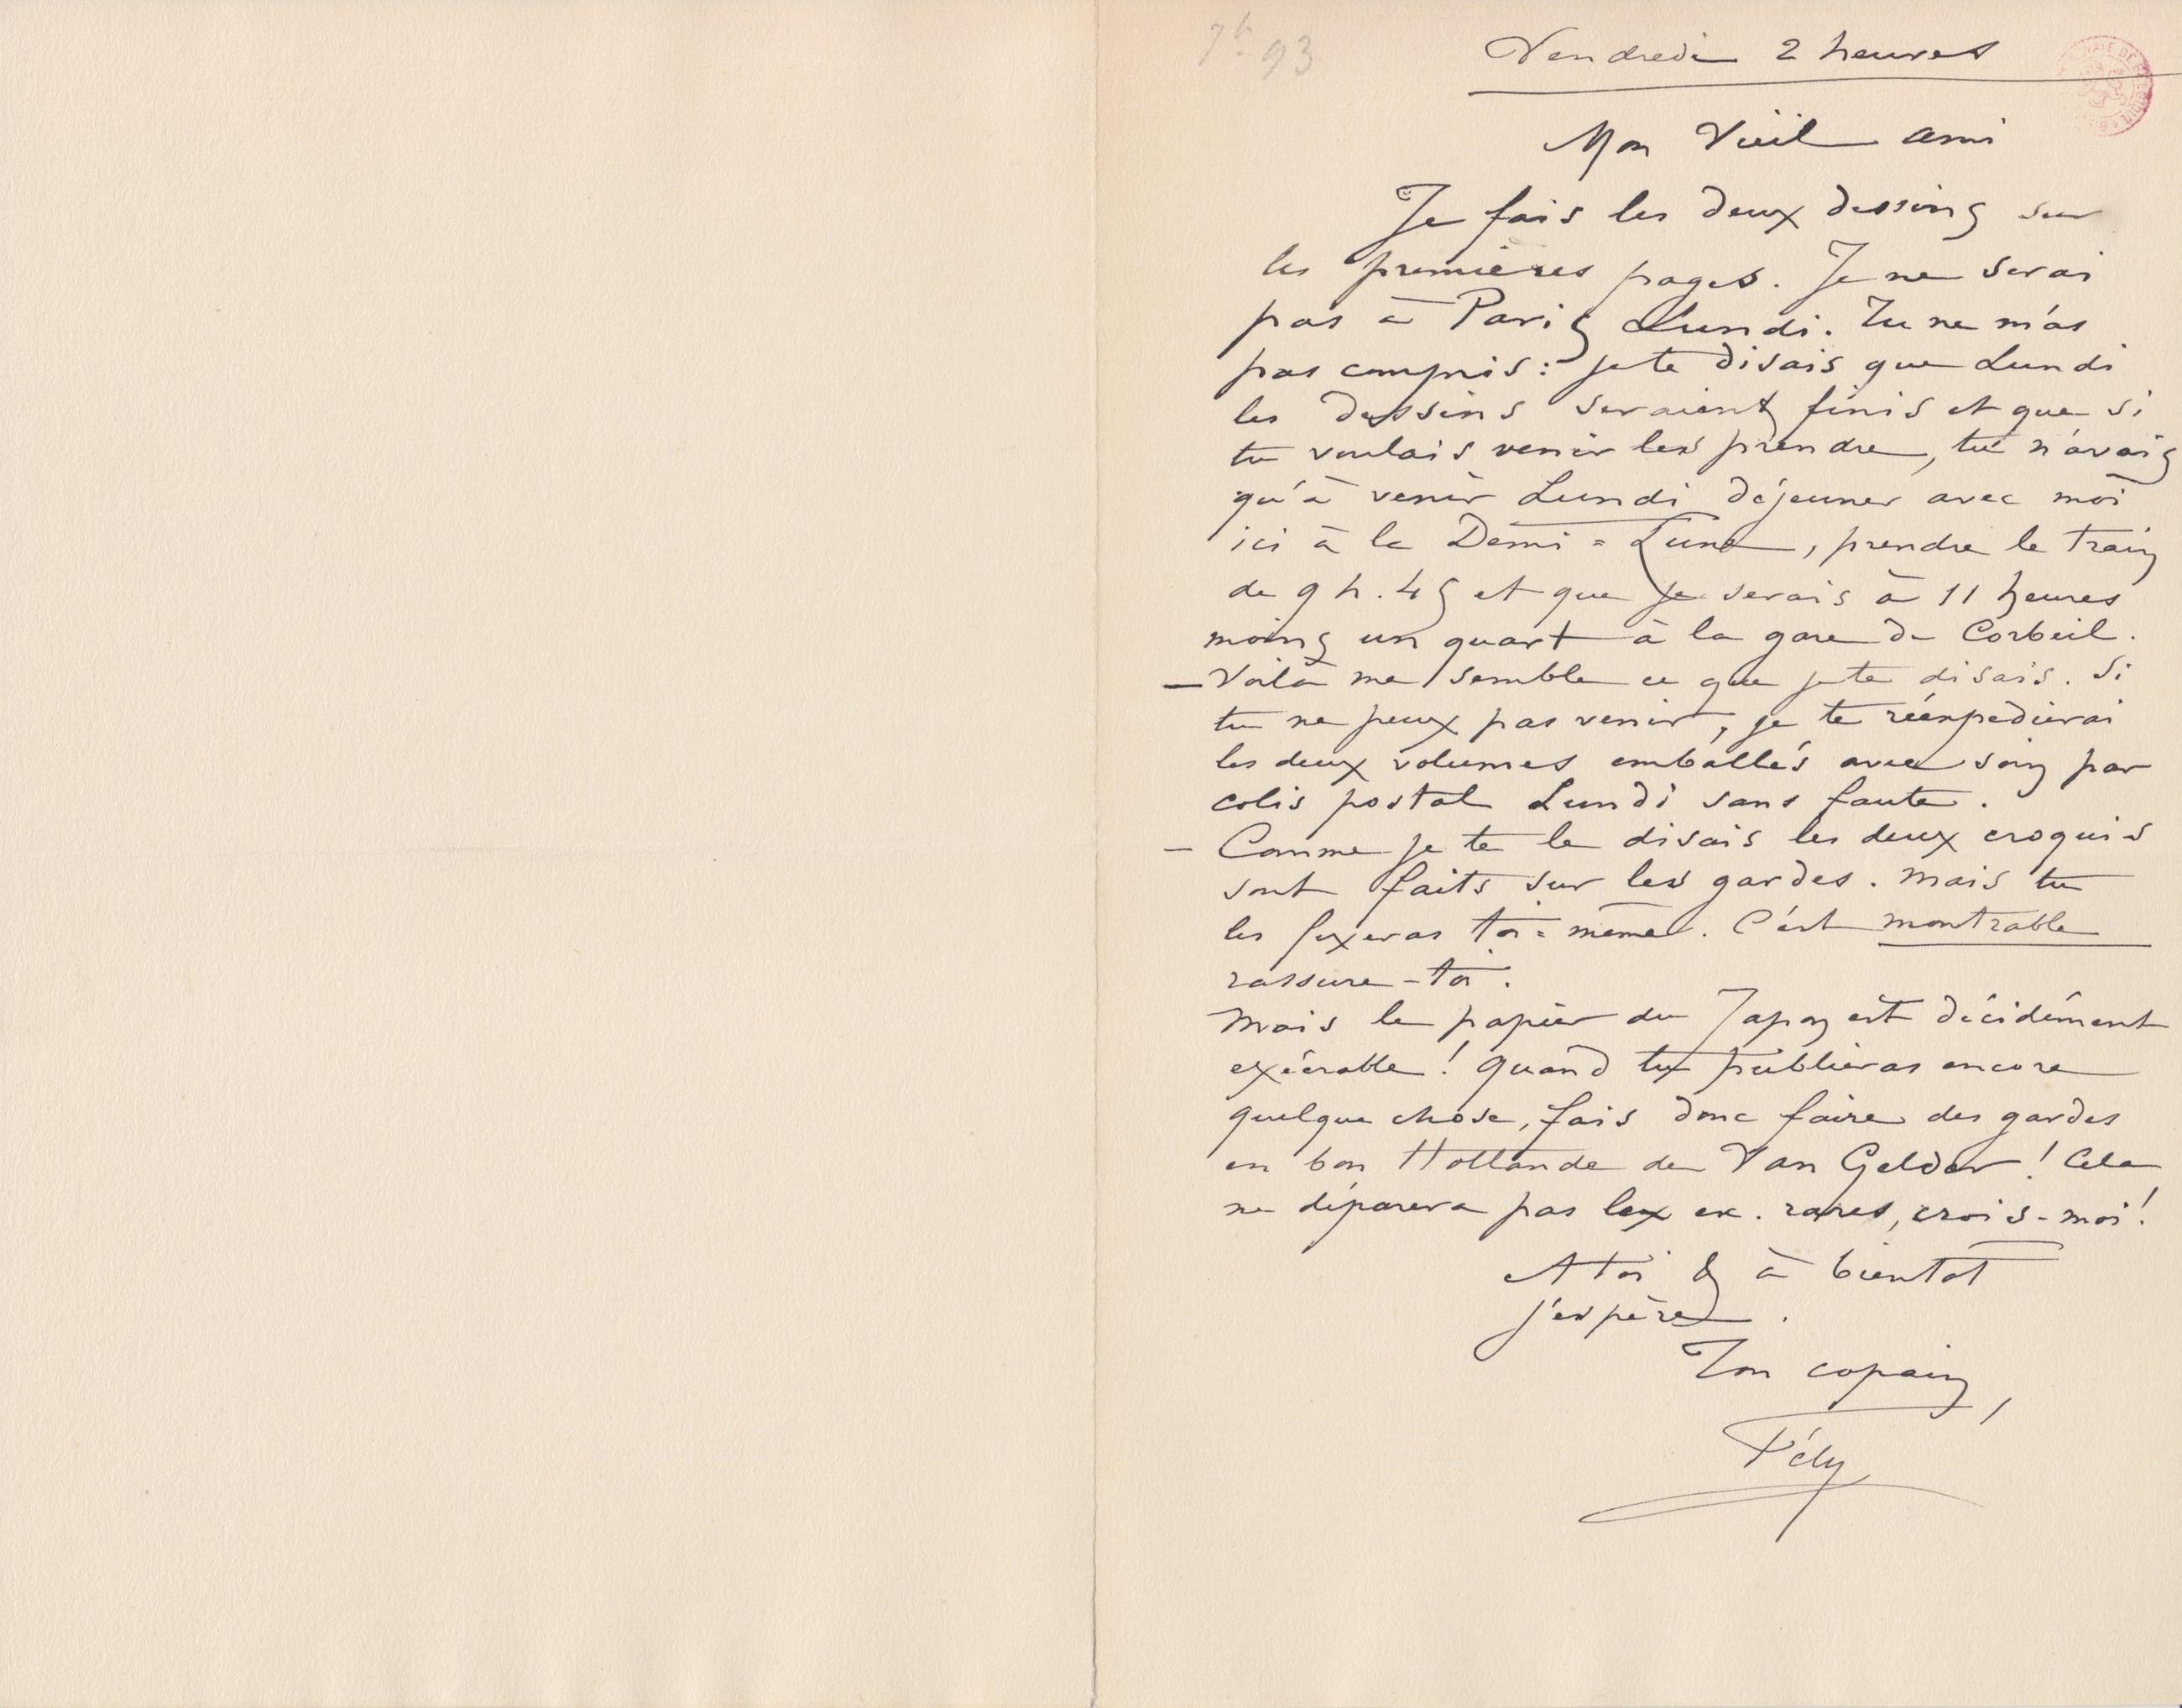 7b 93
Vendredi 2 heures
Mon Vieil ami
Je fais les deux dessins sur
les premières pages. Je ne serai
pas à Paris Lundi. Tu ne m'as
pas compris : je te disais que Lundi
les dessins seraient finis et que si
tu voulais venir les prendre, tu n'avais
qu'à venir Lundi déjeuner avec moi
ici à la Demi = Lune, prendre le train
de 9 h. 45 et que je serais à 11 heures
moins un quart à la gare de Corbeil.
— Voilà me semble ce que je te disais. Si
tu ne peux pas venir, je te réexpédierai
les deux volumes emballés avec soin par
colis postal Lundi sans faute.
— Comme je te le disais les deux croquis
sont faits sur les gardes. Mais tu
les fixeras toi = même. C'est montrable
rassure-toi.
Mais le papier du Japon est décidément
exécrable ! Quand tu publieras encore
quelque chose, fais donc faire des gardes
en bon Hollande de Van Gelder ! Cela
ne déparera pas les ex. rares, crois-moi !
A toi & à bientot
j'espère.
Ton copain,
Fély